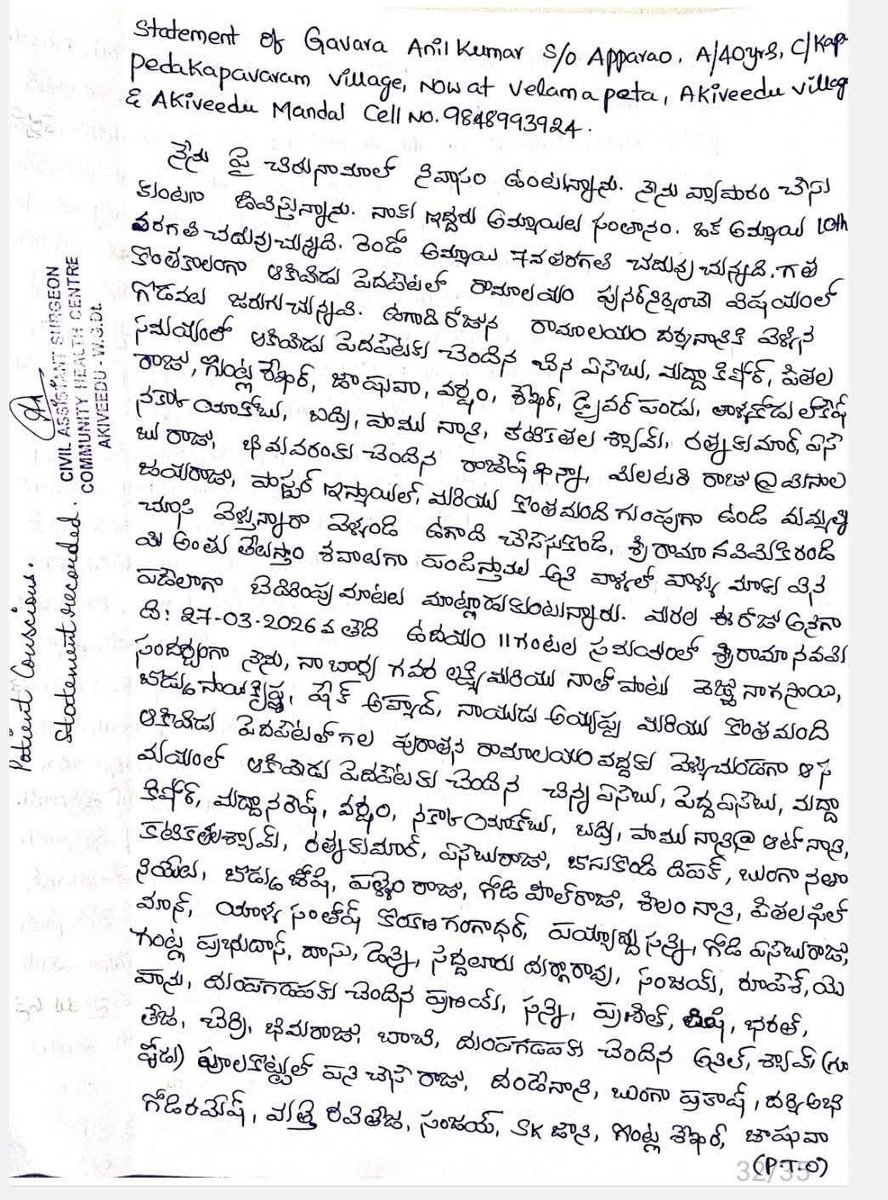 Statement of Gavara Anil Kumar S/o Apparao, A/40yrs, C/Kap-
pedaKapavaram village, Now at Velama peta, AKiveedu villag
& AKiveedu Mandal Cell No. 9848993924.
నేను పై చిరునామాలో నివాసం ఉంటున్నాను. నేను వ్యాపారం చేసు
కుంటూ జీవిస్తున్నాను. నాకు ఇద్దరు అమ్మాయిలు సంతానం. ఒక అమ్మాయి 10th
తరగతి చదువు చున్నది. రెండో అమ్మాయి 7వ తరగతి చదువు చున్నది. గత
కొంతకాలంగా ఆకివీడు పెదపేటలో రామాలయం పునర్నిర్మించే విషయంలో
గొడవలు జరుగు చున్నవి. ఉగాది రోజున రామాలయం దర్శనానికి వెళ్ళిన
సమయంలో ఆకివీడు పెదపేటకు చెందిన చిన ఏసేబు, మద్దా కిషోర్, పితల
రాజు, గుంట్ల శేఖర్, జాషువా, వర్షం, శేఖర్, డ్రైవర్ పండు, లోకేష్
నకళా యాకోబు, బద్రి, పాము నాని, కటికతల శ్యామ్, రత్నకుమార్, ఏసే
బు రాజు, భీమవరంకు చెందిన రాజేష్ ఖన్నా, మెలటరి రాజు @ మోసాల
జయరాజు, పాస్టర్ ఇస్మాయిల్, మరియు కొంతమంది గుంపుగా ఉండి మమ్మల్ని
చూసి వెళ్తున్నారా వెళ్ళండి ఉగాది చేసేసుకోండి, శ్రీ రామా నవమికి రండి
మీ అంతు తేలుస్తాం శవాలుగా పంపిస్తాము అని వాళ్ళలో వాళ్ళు మాకు విన
పడేలాగా బెదిరింపు మాటలు మాట్లాడుకుంటున్నారు. మరల ఈ రోజు అనగా
ది: 27-03-2026 వ తేదీ ఉదయం 11 గంటల సమయంలో శ్రీరామా నవమి
సందర్భంగా నేను, నా భార్య గవర లక్ష్మి మరియు నాతో పాటు వెజ్జు నాగసాయి,
బొడ్డు సాయికృష్ణ, షేక్ అహ్మద్, నాయుడు అయ్యప్ప మరియు కొంతమంది
ఆకివీడు పెదపేటలో గల పురాతన రామాలయం వద్దకు వెళ్ళుచుండగా ఆ స
మయంలో ఆకివీడు పెదపేటకు చెందిన చిన్న ఏసేబు, పెద్ద ఏసేబు, మద్దా
కిషోర్, మద్దా నరేష్, వర్షం, నకళా యాకోబు, బద్రి, పాము నాని @ ఆటో నాని,
కటికతల శ్యామ్, రత్నకుమార్, ఏసేబురాజు, బాసుకొండి దీపక్, బుంగా నతా
నియేలు, బొడ్డు జోషి, పళ్ళెం రాజు, గోడి పాల్ రాజు, శీలం నాని, పితల ఫిల్
మోన్, యాళ్ళ సంతోష్ కొయణ గంగాధర్, పయ్యాబ్ది సన్ని, గోడి ఏసేబురాజు,
గుంట్ల ప్రభుదాస్, దాసు, డెన్ని, సిద్దలూరు దుర్గారావు, సంజయ్, రూపేశ్, యె
హాను, దుంపగడపకు చెందిన ప్రణయ్, సన్ని, ప్రణీత్, రిషి, భరత్,
తేజ, చెర్రి, భీమరాజు, బాబి, దుంపగడపకు చెందిన అనిల్, శ్యామ్ (గూ
షేడు) పూలకొట్టులో పని చేసే రాజు, దండేనాని, బుంగా ప్రకాష్, దర్శి అభి
గోడి రమేష్, మత్తి రవితేజ, సంజయ్, SK జానీ, గుంట్ల శేఖర్, జాషువా
(P.T.O)
32/35
Patient Conscious.
Statement recorded.
CIVIL ASSISTANT SURGEON
COMMUNITY HEALTH CENTRE
AKIVEEDU - W.G.Dt.